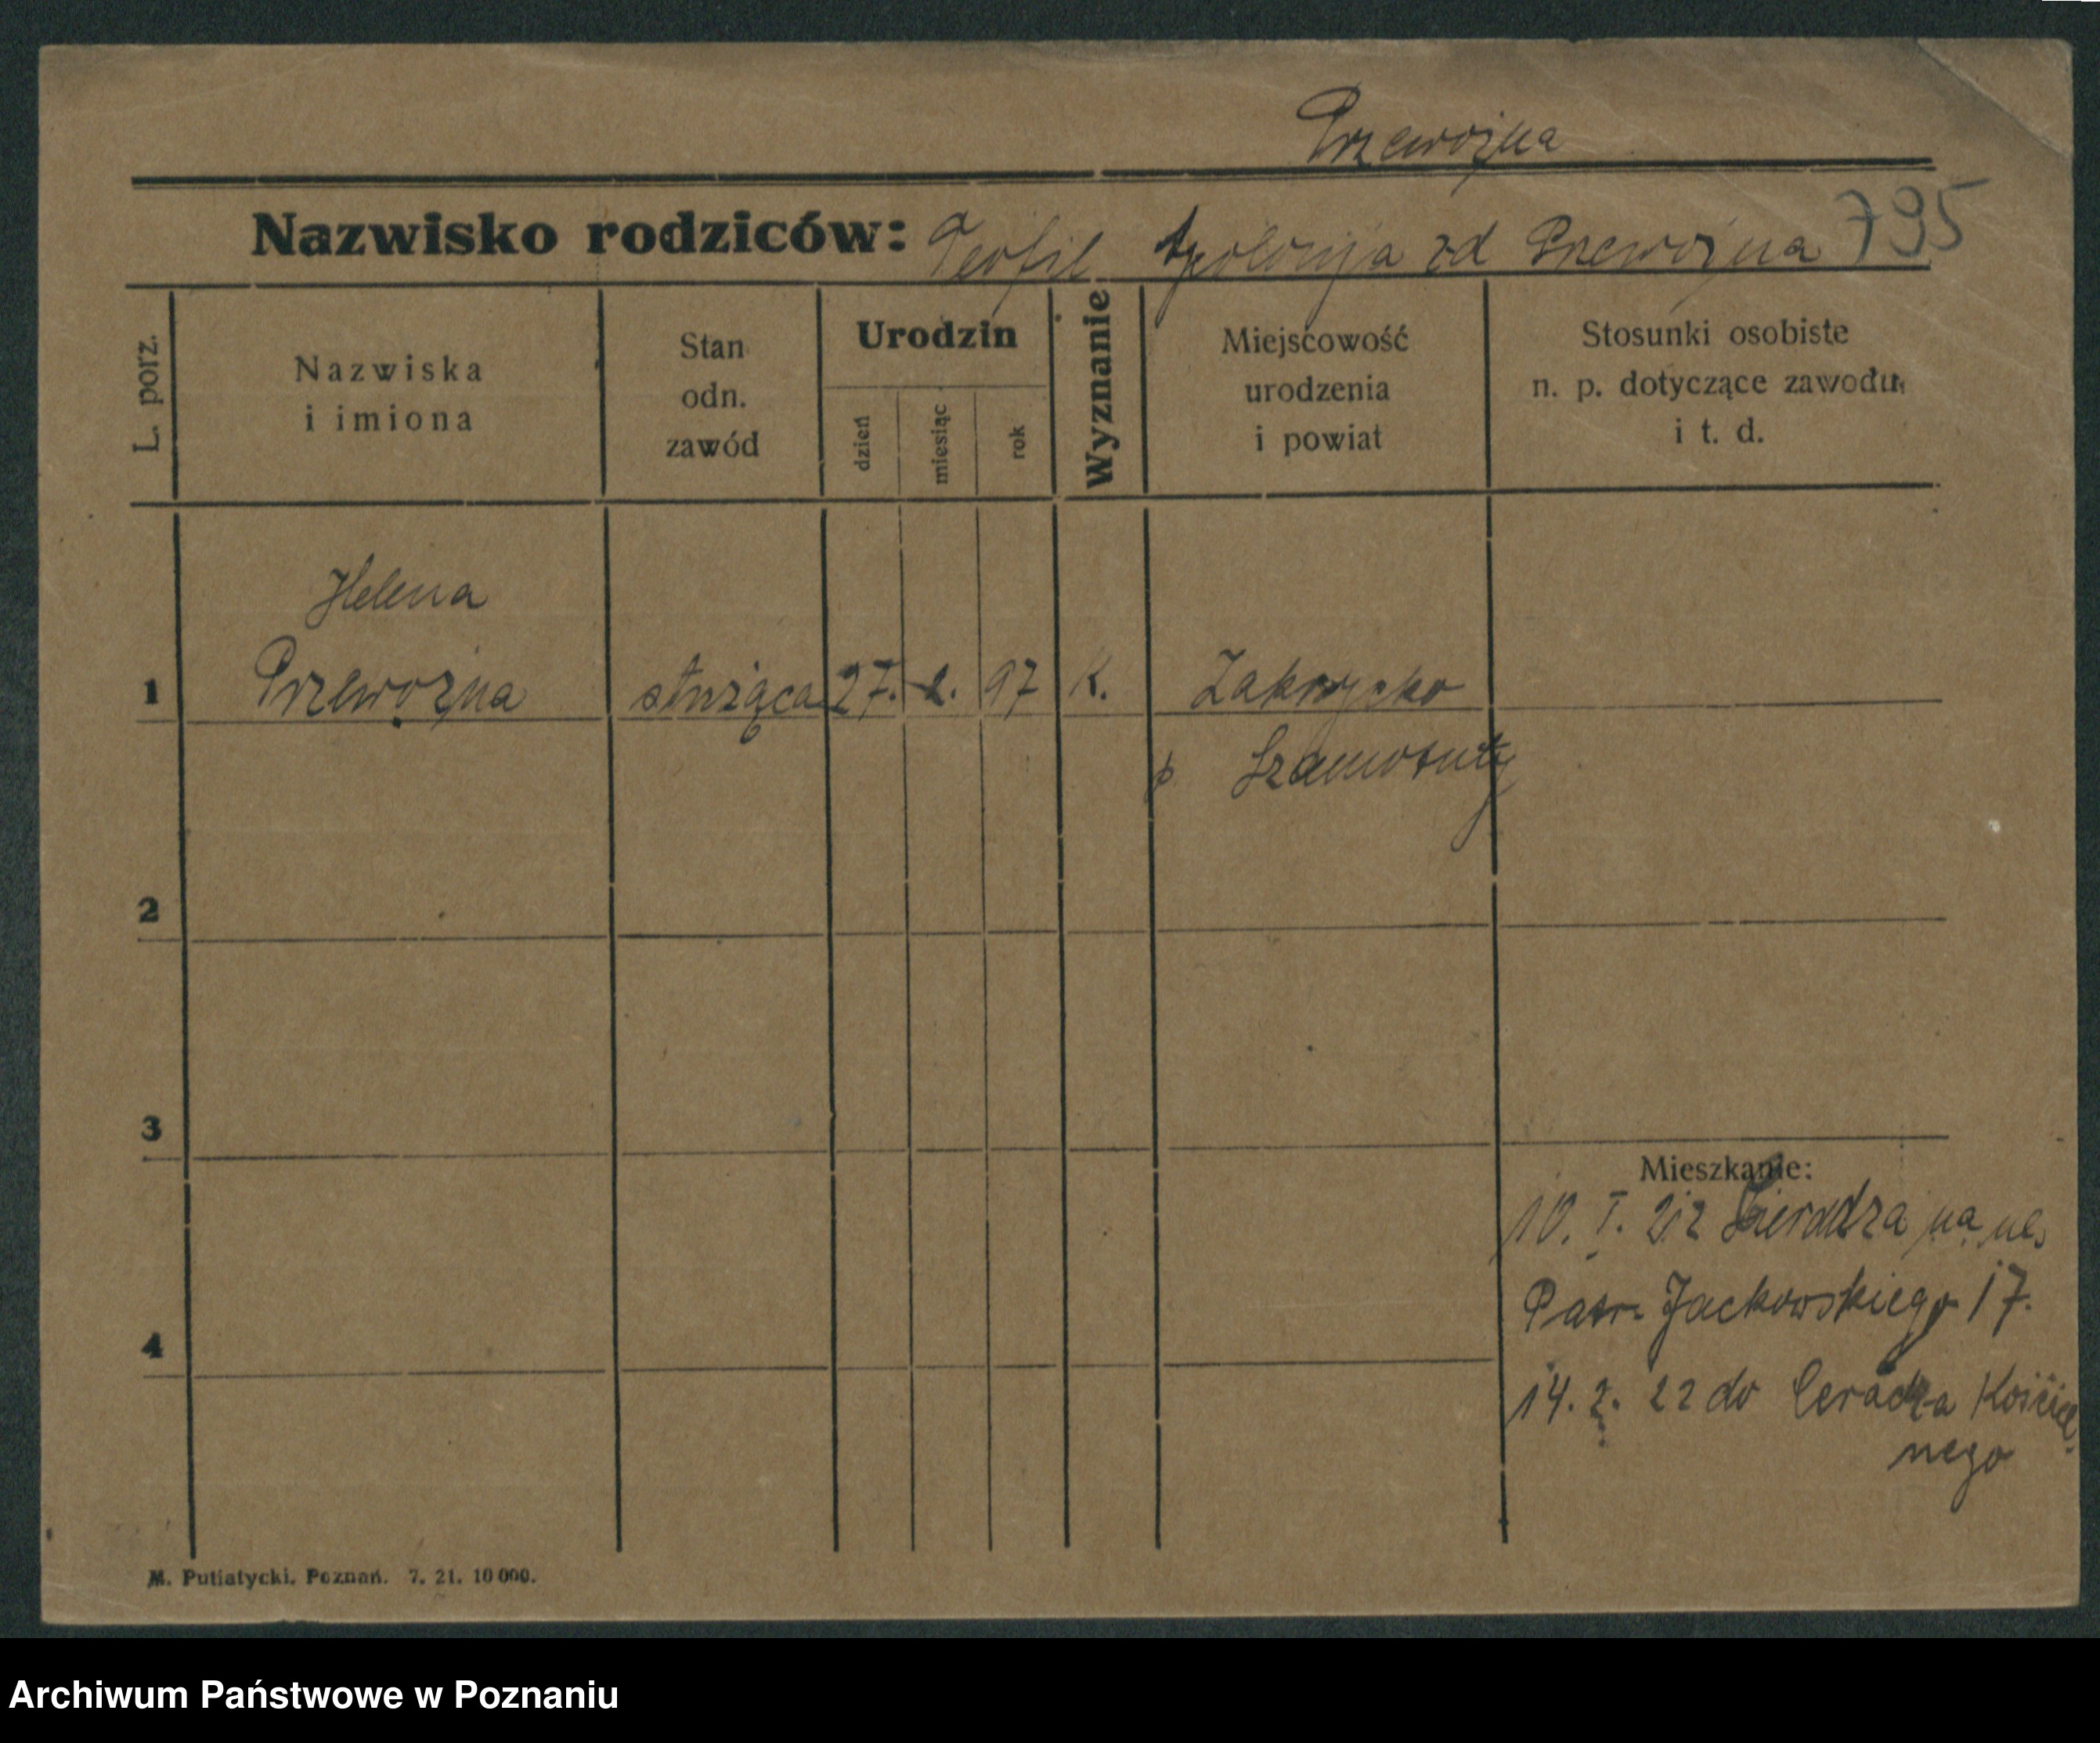 Przewoźna
Nazwisko rodziców: Teofil Apolonja zd Przewoźna 795
L. porz.
Nazwiska
i imiona
Stan
odn.
zawód
Urodzin
dzień
miesiąc
rok
Wyznanie
Miejscowość
urodzenia
i powiat
Stosunki osobiste
n. p. dotyczące zawodu,
i t. d.
Helena
1 Przewoźna służąca 27. 2. 97 K. Zakrzewko
p Szamotuły
2
3
Mieszkanie:
10. I. 22 Sieradza na ul.
Patr. Jackowskiego 17.
4
14. 2. 22 do Ceradza Kościel
nego
M. Putiatycki, Poznań. 7. 21. 10 000.
Archiwum Państwowe w Poznaniu